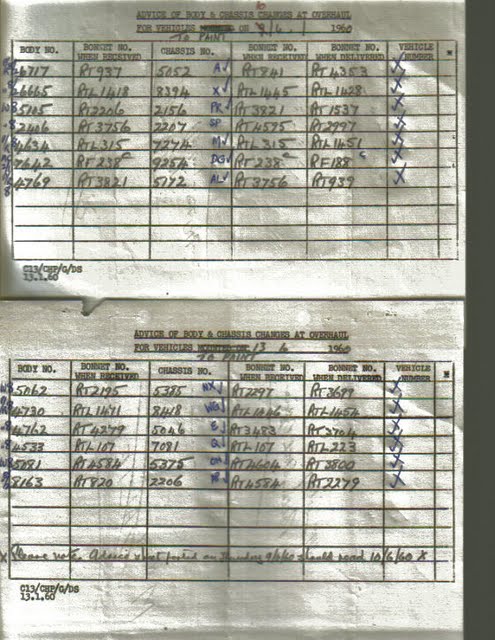 10
ADVICE OF BODY & CHASSIS CHANGES AT OVERHAUL
FOR VEHICLES ON /6/ 1960
TO PAINT
BODY NO. BONNET NO. WHEN RECEIVED CHASSIS NO. BONNET NO. WHEN RECEIVED BONNET NO. WHEN DELIVERED VEHICLE NUMBER
6717 RT937 5052 A✓ RT841 RT4353 ✓
6665 RTL1418 8394 X✓ RTL1445 RTL1428 ✓
5105 RT2206 2156 PK✓ RT3821 RT1537 ✓
2406 RT3756 2207 SP RT4595 RT2997 ✓
4634 RTL315 7274 M✓ RTL315 RTL1451 ✓
7642 RF238 9254 DG✓ RF238 RF188 ✓
4769 RT3821 5172 AL✓ RT3756 RT939 ✓
C13/CHP/G/DS
13.1.60
ADVICE OF BODY & CHASSIS CHANGES AT OVERHAUL
FOR VEHICLES 13 6 1960
TO PAINT
BODY NO. BONNET NO. WHEN RECEIVED CHASSIS NO. BONNET NO. WHEN RECEIVED BONNET NO. WHEN DELIVERED VEHICLE NUMBER
5062 RT2195 5385 NX✓ RT2297 RT3699 ✓
4730 RTL1471 8418 WG✓ RTL1046 RTL1454 ✓
4762 RT4279 5046 E✓ RT3483 RT3704 ✓
4533 RTL107 7081 Q✓ RTL107 RTL223 ✓
5081 RT4584 5375 ✓ RT4604 RT2800 ✓
8163 RT820 2206 ✓ RT4584 RT2279 ✓
X Please note Advice sheet posted on Thursday 9/6/60 should read 10/6/60 X
C13/CHP/G/DS
13.1.60